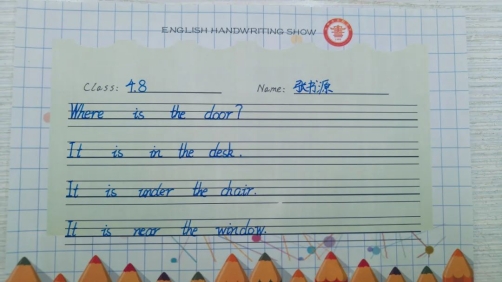 ENGLISH HANDWRITING SHOW
Class: 4.8 Name: 张书源
Where is the door?
It is in the desk.
It is under the chair.
It is near the window.